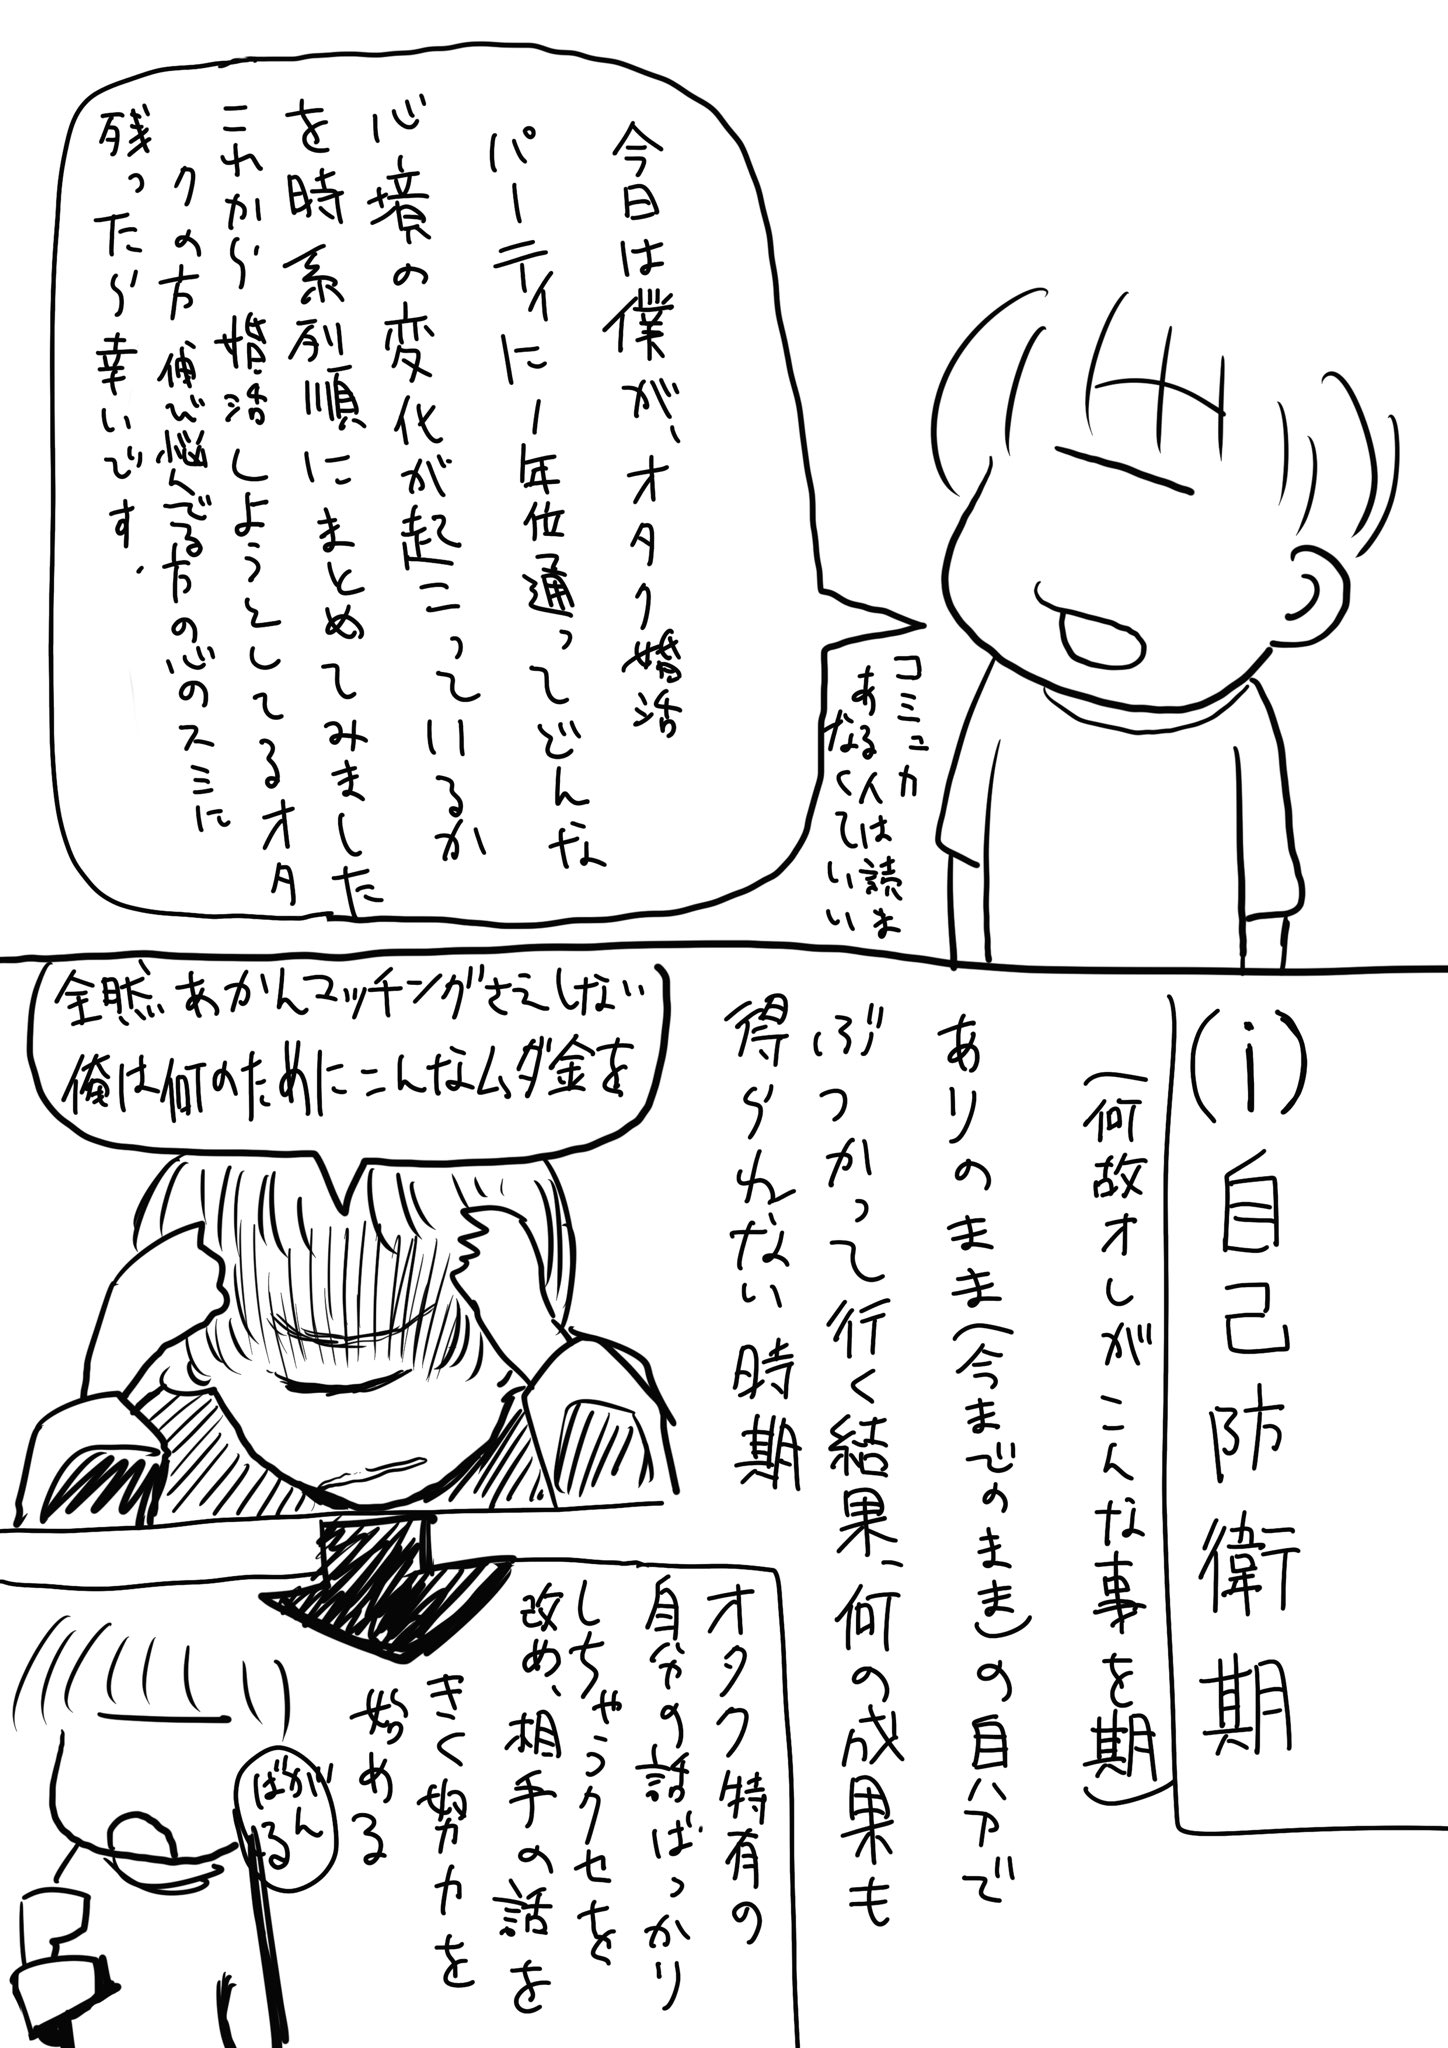 今日は僕が、オタク婚活
パーティに1年位通ってどんな
心境の変化が起こっているか
を時系列順にまとめてみました
これから婚活しようとしてるオタ
クの方、伸び悩んでる方の心のスミに
残ったら幸いです.
コミュ力
ある人は読ま
なくていい
(i)自己防衛期
(何故オレがこんな事を期)
ありのまま(今までのまま)の自ハアで
ぶつかって行く結果、何の成果も
得られない時期
全然あかんマッチングさえしない
俺は何のためにこんなムダ金を
オタク特有の
自分の話ばっかり
しちゃうクセを
改め、相手の話を
きく努力を
始める
がん
ばる